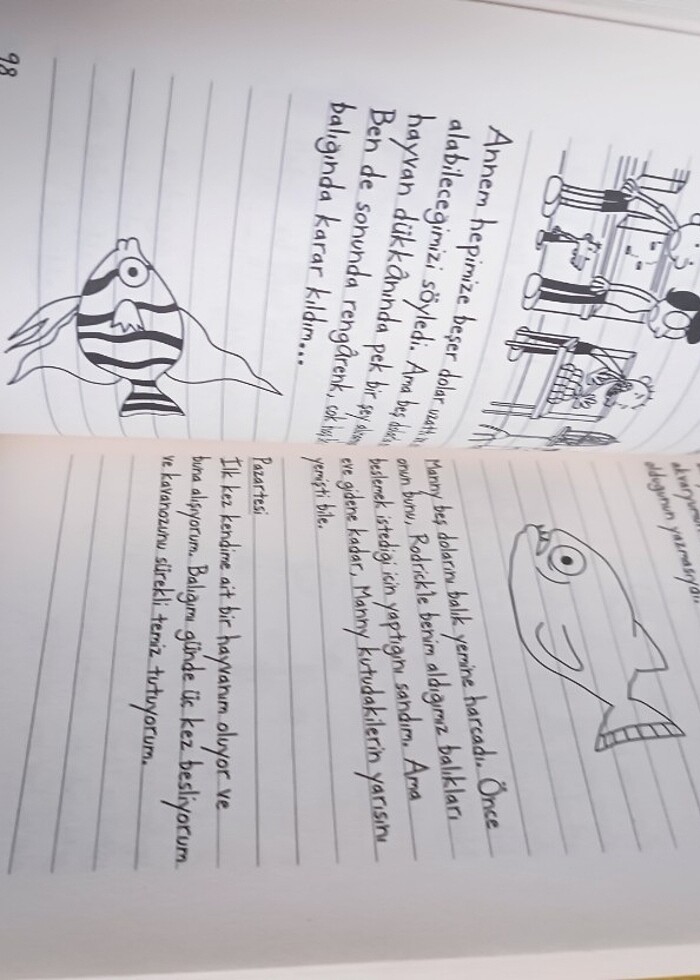 Annem hepimize beşer dolar
alabileceğimizi söyledi. Ama beş
hayvan dükkânında pek bir şey
Ben de sonunda rengârenk, çok
balığında karar kıldım...
98
olduğunun yazmasıydı.
Manny beş dolarını balık yemine harcadı. Önce
onun bunu, Rodrick'le benim aldığımız balıkları
beslemek istediği için yaptığını sandım. Ama
eve gidene kadar, Manny kutudakilerin yarısını
yemişti bile.
Pazartesi
İlk kez kendime ait bir hayvanım oluyor ve
buna alışıyorum. Balığımı günde üç kez besliyorum
ve kavanozunu sürekli temiz tutuyorum.